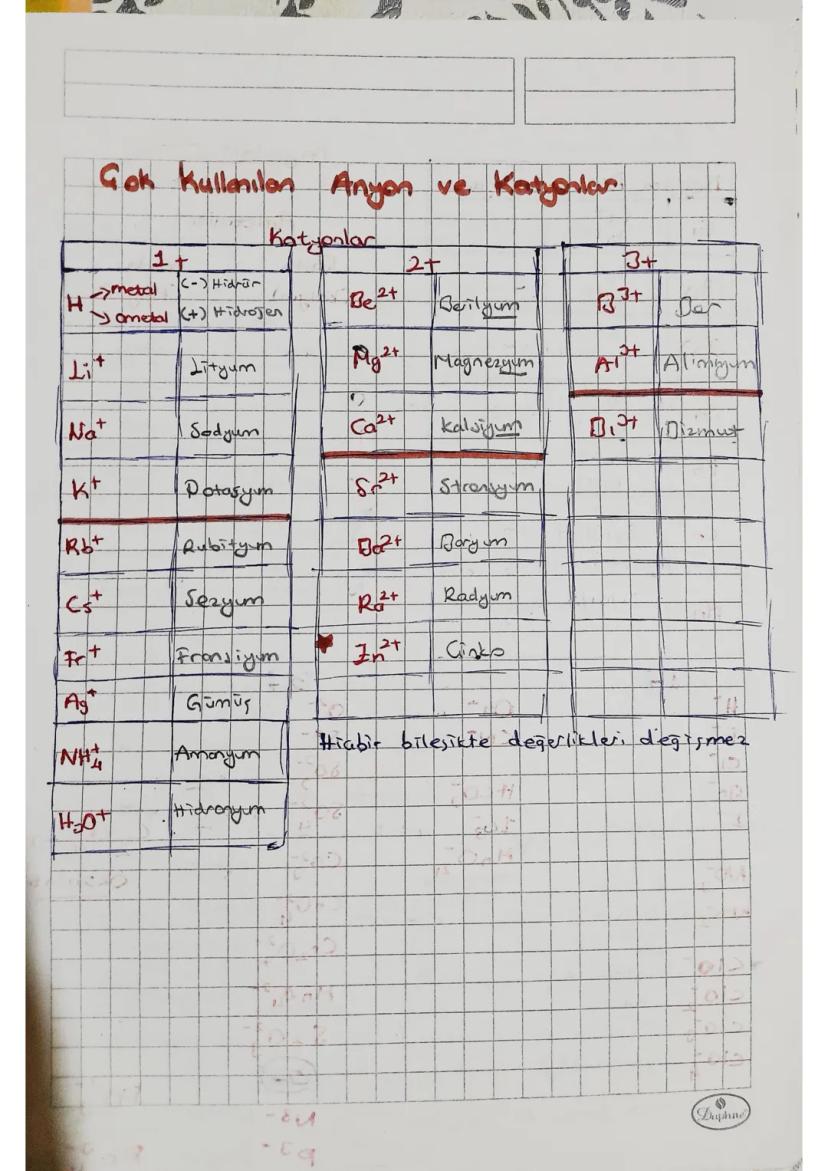 Çok Kullanılan Anyon ve Katyonlar
Katyonlar
1+
H → metal (-) Hidrür
→ ametal (+) Hidrojen
Li+ Lityum
Na+ Sodyum
K+ Potasyum
Rb+ Rubityum
Cs+ Sezyum
Fr+ Fransiyum
Ag+ Gümüş
NH4+ Amonyum
H3O+ Hidronyum
2+
Be2+ Berilyum
Mg2+ Magnezyum
Ca2+ Kalsiyum
Sr2+ Stronsiyum
Ba2+ Baryum
Ra2+ Radyum
Zn2+ Çinko
3+
B3+ Bor
Al3+ Alminyum
Bi3+ Bizmut
Hiçbir bileşikte değerlikleri değişmez
Daphne